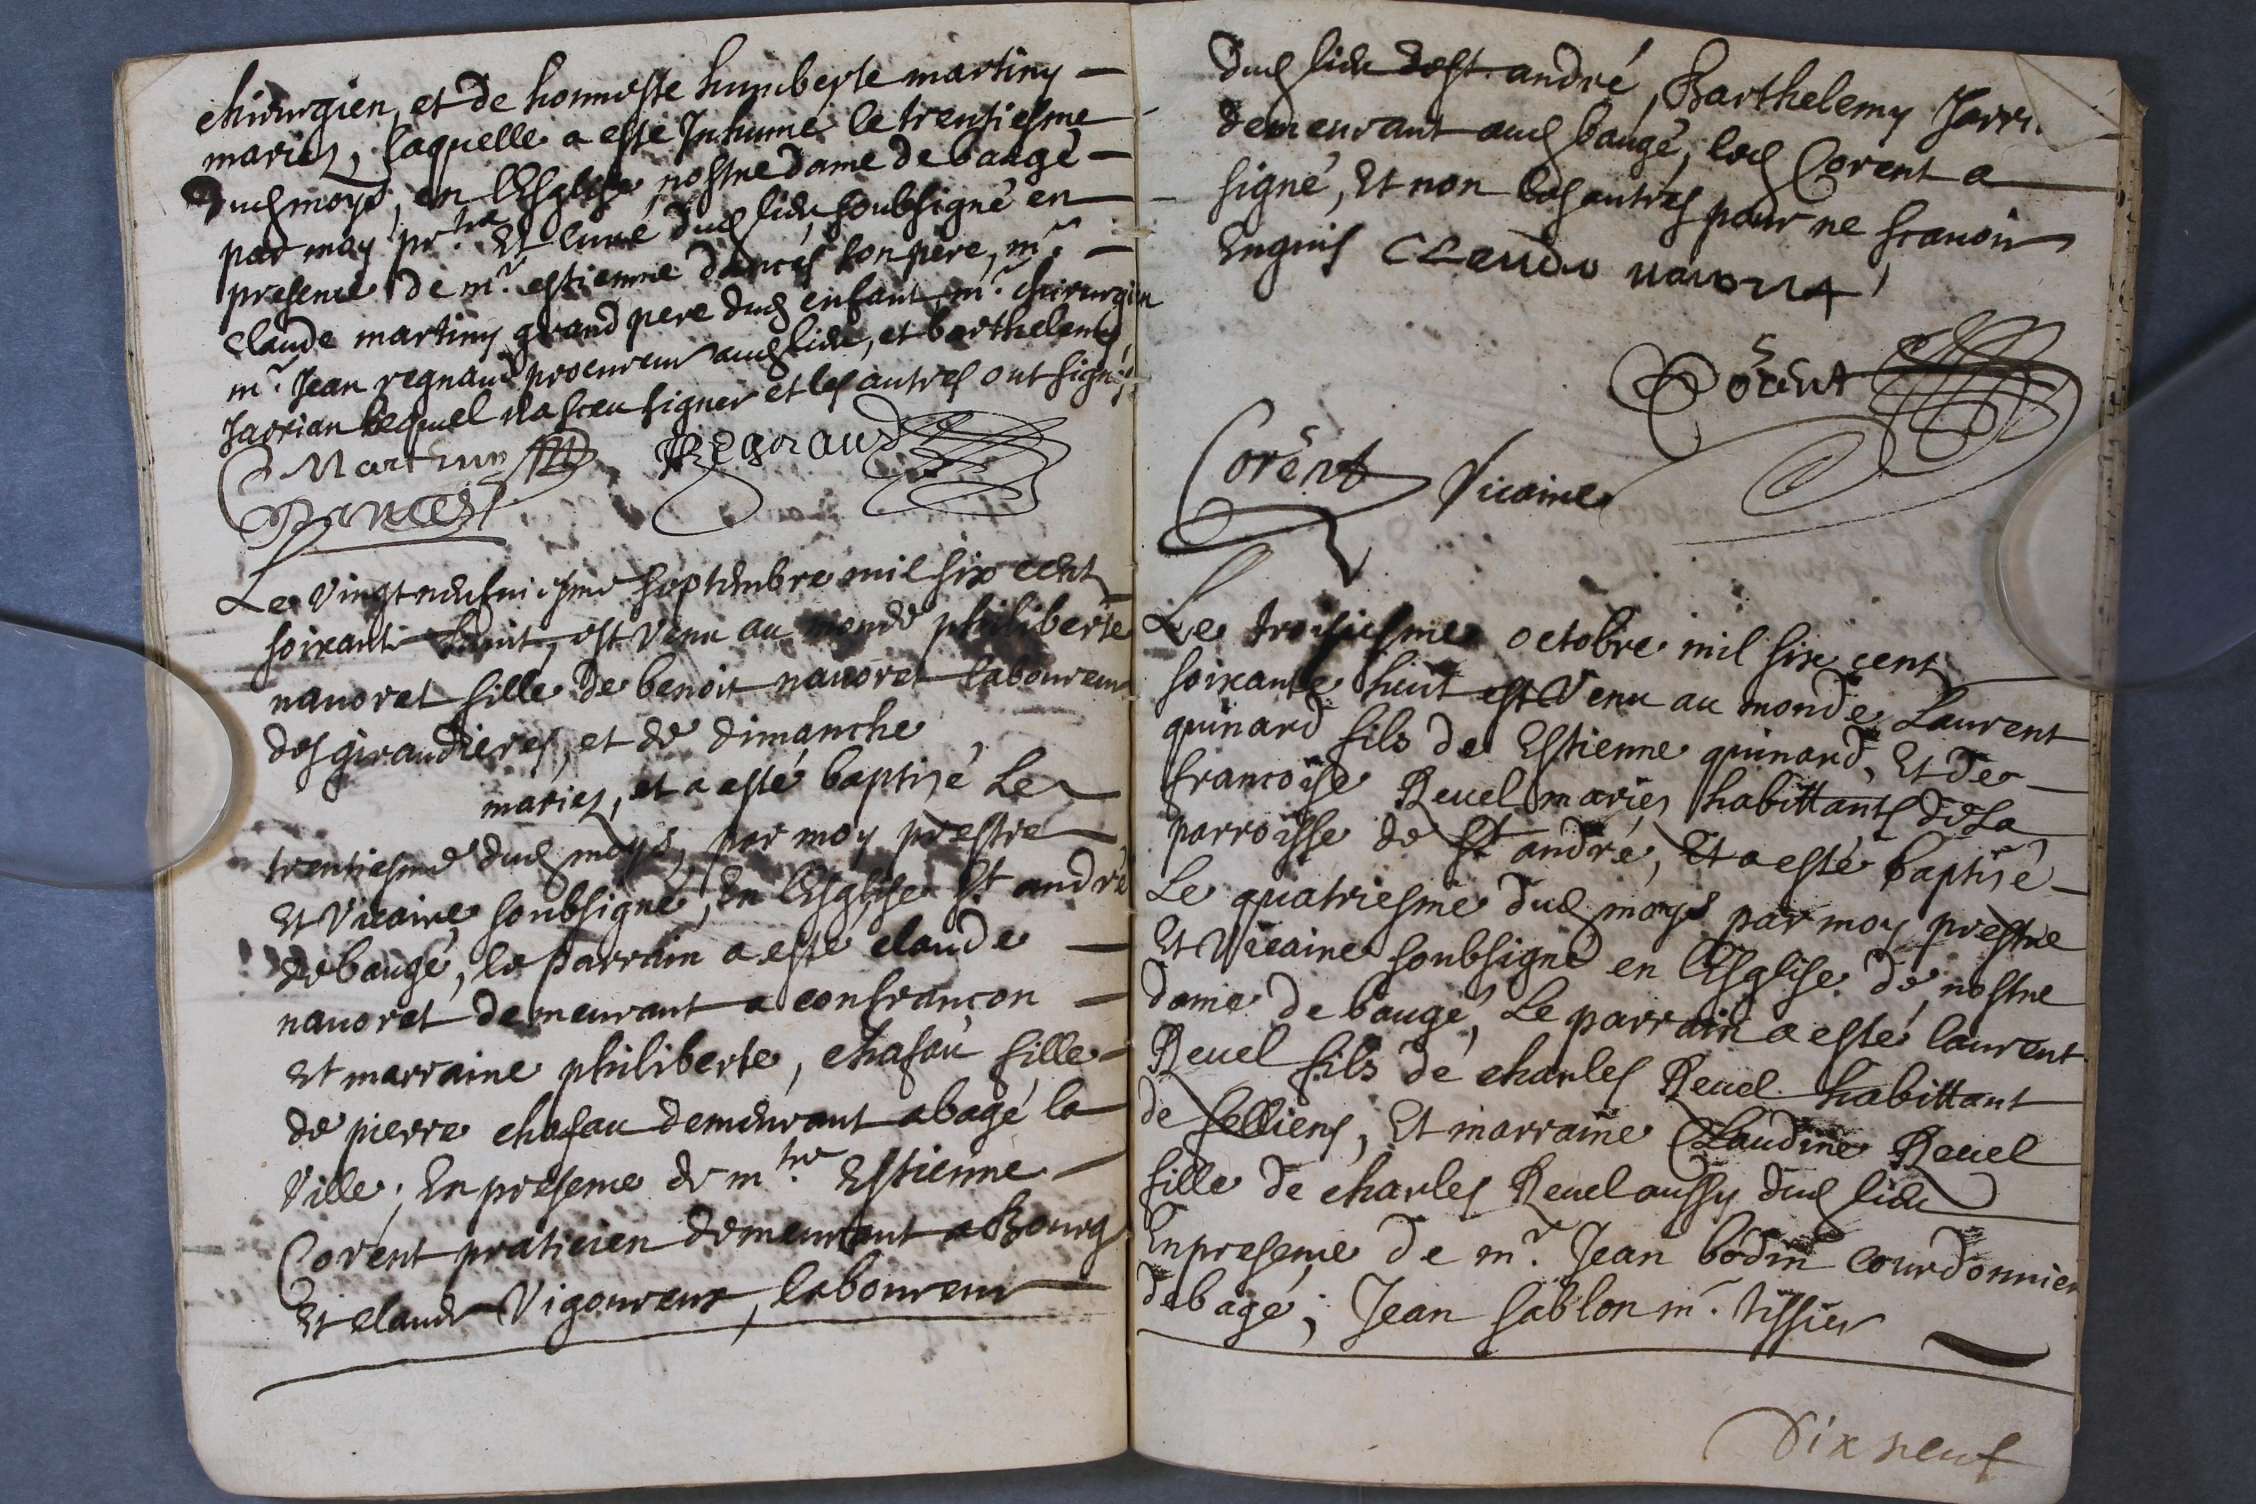 chirurgien, et de honneste humberte martiny
mariez, laquelle a esté Inhumé le trentiesme
dud moys, en l'Esglise nostre dame de baugé
par moy pr.tre Et curé dud lieu soubsigné en
presence de m.r estienne dancés son père, m.r
claude martiny grand pere dud enfant m.r chirurgien
m.r Jean regnaud procureur aud lieu, et barthelemy
Jarrian lequel na sceu signer et les autres ont signé
Martiny Regnaud
Dances
Le vingt neufuiesme septembre mil six cent
soixante huit, est venu au monde philiberte
nauoret fille de benoit nauoret laboureur
des giraudieres, et de dimanche
mariez, et a esté baptisé Le
trentiesme dud moys, par moy prestre
Et Vicaire soubsigné, En l'Esglise St andré
de baugé, le parrain a esté claude
nauoret demeurant a confrancon
Et marraine philiberte, chafau fille
de pierre chafau demeurant a bagé la
Ville; En presence de m.tre Estienne
Corent praticien demeurant a Bourg
Et claude Vigoureux, laboureur
dud lieu de St andré, Barthelemy Jarri
demeurant aud baugé, led Corent a
signé, Et non les autres pour ne scauoir
Enquis CLeudo nauoret
Corent
Corent Vicaire
Le troisiesme octobre mil six cent
soixante huit est Venu au monde Laurent
quinard fils de Estienne quinard, Et de
francoise Reuel mariez habittants de La
parroisse de St andré, Et a esté baptisé
Le quatriesme dud moys par moy prestre
Et Vicaire soubsigné en l'Esglise de nostre
dame de baugé, Le parrain a esté laurent
Reuel fils de charles Reuel habittant
de felliens, Et marraine Claudine Reuel
fille de charles Reuel aussy dud lieu
En presence de m.r Jean bodin courdonnier
de bagé; Jean sablon m.r tissier
Dix neuf